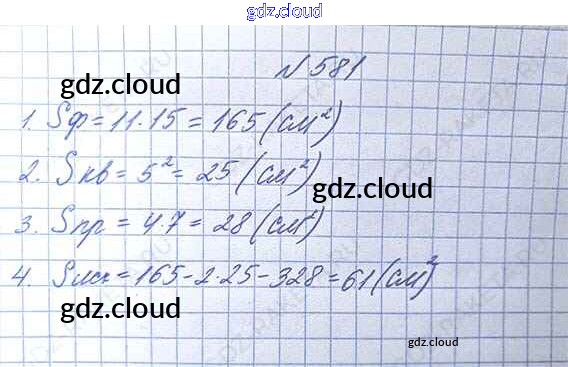 gdz.cloud
N 581
gdz.cloud
1. Sф = 11·15 = 165 (см²)
2. Sкв = 5² = 25 (см²)
gdz.cloud
3. Sпр = 4·7 = 28 (см²)
4. Sиск = 165 - 2·25 - 328 = 61 (см²)
gdz.cloud
gdz.cloud